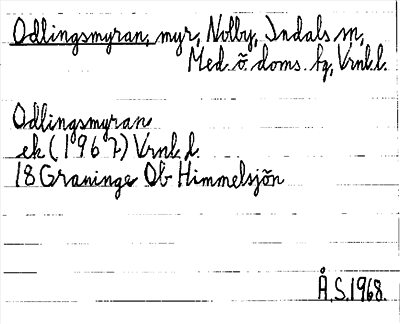 Odlingsmyran, myr, Nolby, Indals sn,
Med. ö. doms. hg, Vrnl.l.
Odlingsmyran
ek (1967) Vrnl.l.
18 Graninge Ob Himmelsjön
Å.S. 1968.